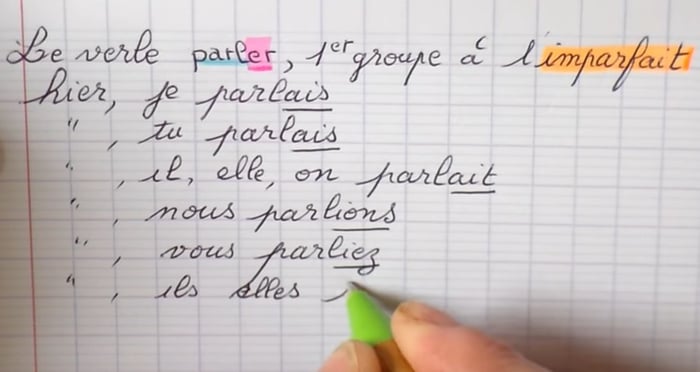 Le verbe parler, 1er groupe à l'imparfait
hier, je parlais
" , tu parlais
" , il, elle, on parlait
" , nous parlions
" , vous parliez
" , ils elles